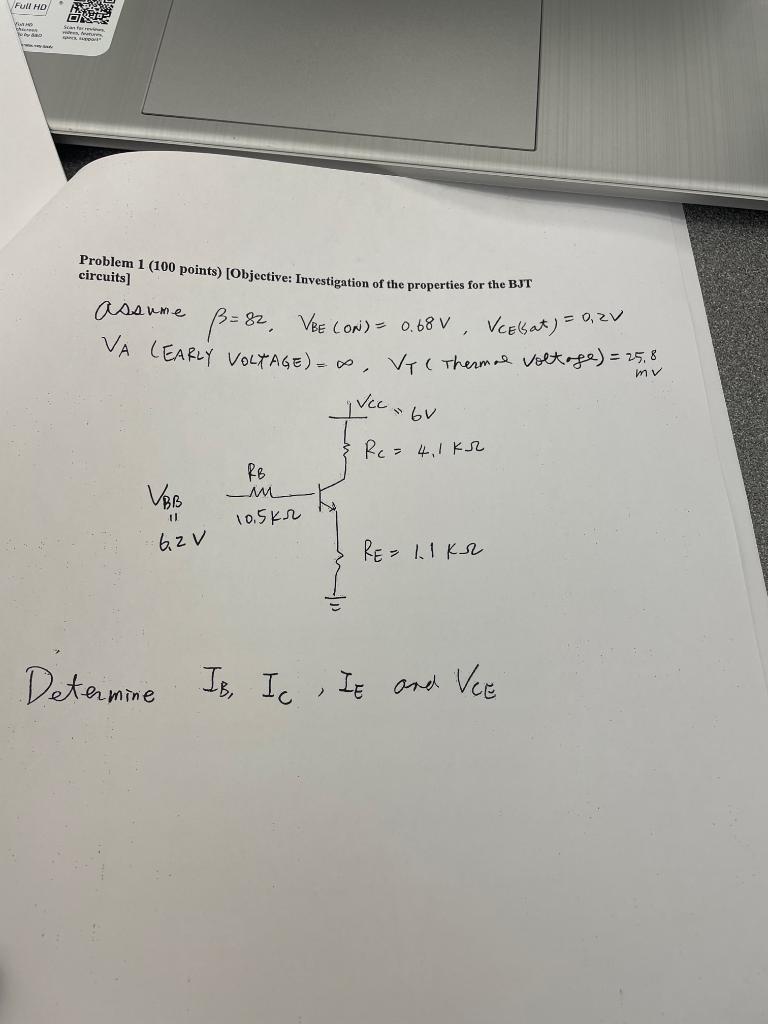 Full HD
Full HD
Scan for reviews,
videos, features,
specs, support*
Problem 1 (100 points) [Objective: Investigation of the properties for the BJT
circuits]
assume β = 82, VBE (ON) = 0.68 V, VCE(sat) = 0,2V
VA (EARLY VOLTAGE) = ∞, VT (Thermal Voltage) = 25.8
mV
Vcc = 6V
Rc = 4.1 KΩ
RB
VBB
10.5KΩ
"
6.2 V
RE = 1.1 KΩ
Determine IB, IC, IE and VCE